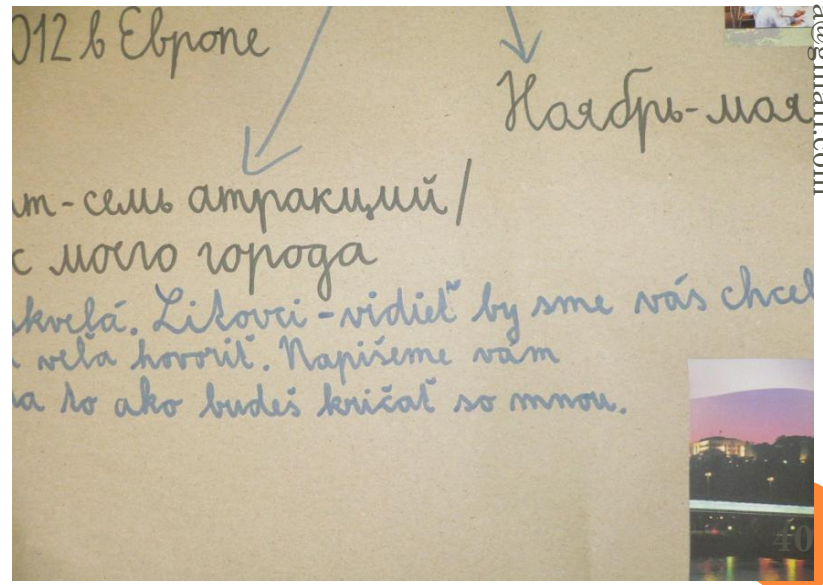 012 в Европе
Ноябрь-моя
т-семь атракций/
с моего города
skvelá. Litovci-vidieť by sme vás chcel
veľa hovoriť. Napíšeme vám
na to ako budeš kričať so mnou.
a@gmail.com
40